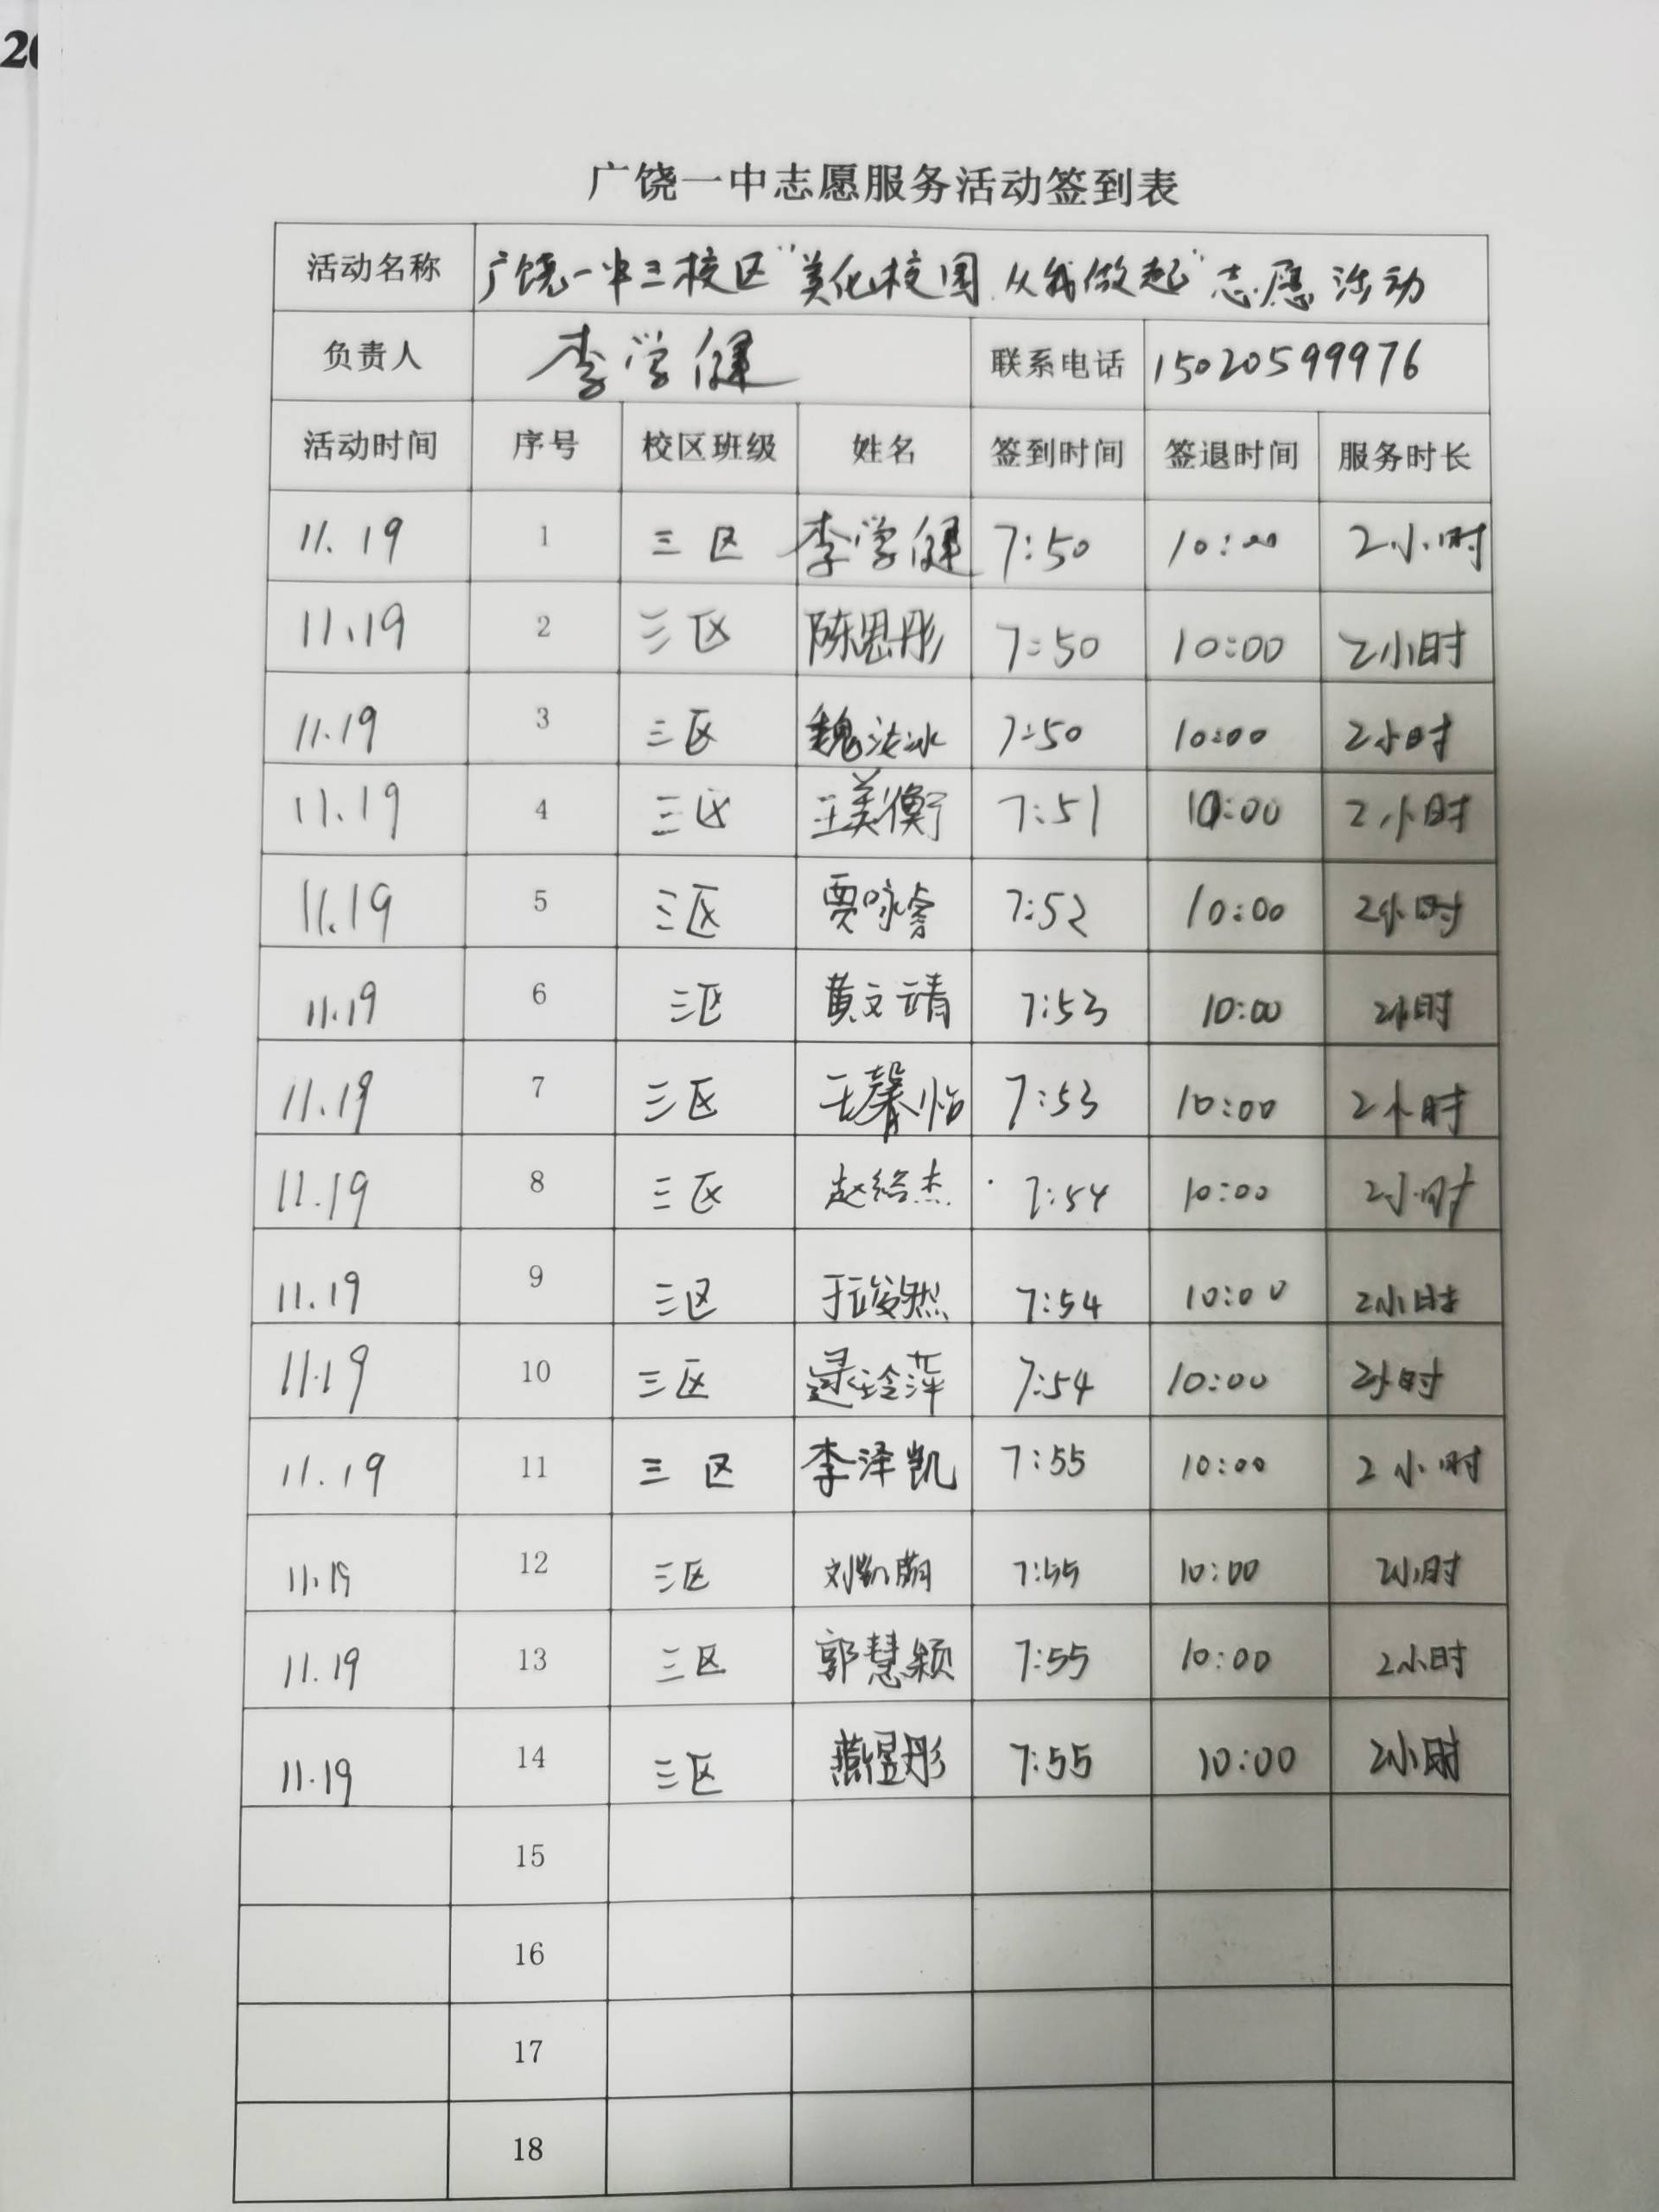 20
广饶一中志愿服务活动签到表
活动名称 广饶一中三校区“美化校园 从我做起”志愿活动
负责人 李学健 联系电话 15020599976
活动时间 序号 校区班级 姓名 签到时间 签退时间 服务时长
11.19 1 三区 李学健 7:50 10:00 2小时
11.19 2 三区 陈思彤 7:50 10:00 2小时
11.19 3 三区 魏冰 7:50 10:00 2小时
11.19 4 三区 王美衡 7:51 10:00 2小时
11.19 5 三区 贾咏睿 7:52 10:00 2小时
11.19 6 三区 黄文靖 7:53 10:00 2小时
11.19 7 三区 王馨怡 7:53 10:00 2小时
11.19 8 三区 赵绍杰 7:54 10:00 2小时
11.19 9 三区 7:54 10:00 2小时
11.19 10 三区 逯玲萍 7:54 10:00 2小时
11.19 11 三区 李泽凯 7:55 10:00 2小时
11.19 12 三区 7:55 10:00 2小时
11.19 13 三区 郭慧颖 7:55 10:00 2小时
11.19 14 三区 燕煜彤 7:55 10:00 2小时
15
16
17
18